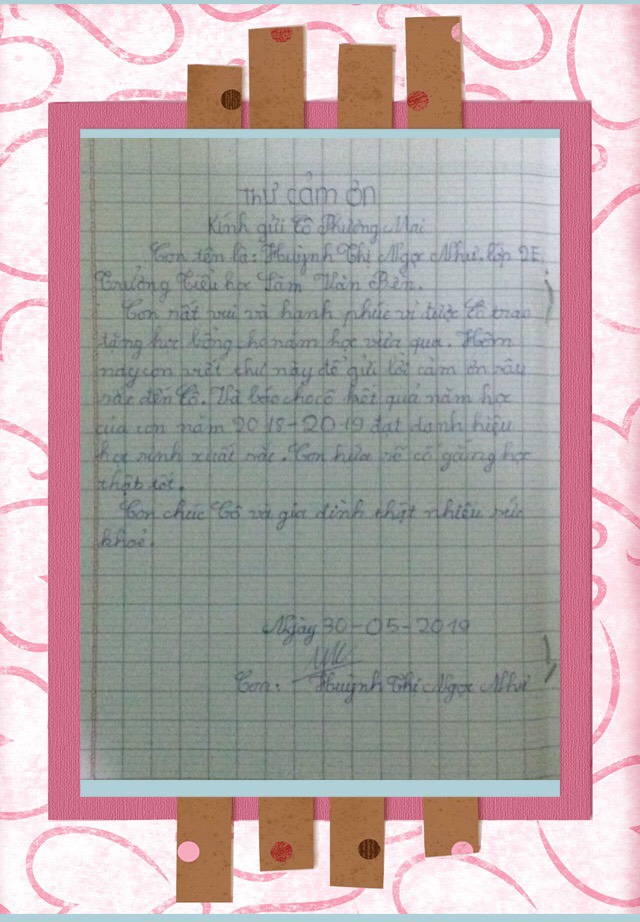 Thư cảm ơn
Kính gửi Cô Phương Mai
Con tên là: Huỳnh Thị Ngọc Như, lớp 2E,
Trường Tiểu học Lâm Văn Bền.
Con rất vui và hạnh phúc vì được Cô trao
tặng học bổng cho năm học vừa qua. Hôm
nay con viết thư này để gửi lời cảm ơn sâu
sắc đến Cô. Và báo cho cô kết quả năm học
của con năm 2018-2019 đạt danh hiệu
học sinh xuất sắc. Con hứa sẽ cố gắng học
thật tốt.
Con chúc Cô và gia đình thật nhiều sức
khoẻ.
Ngày 30-05-2019
Con: Huỳnh Thị Ngọc Như